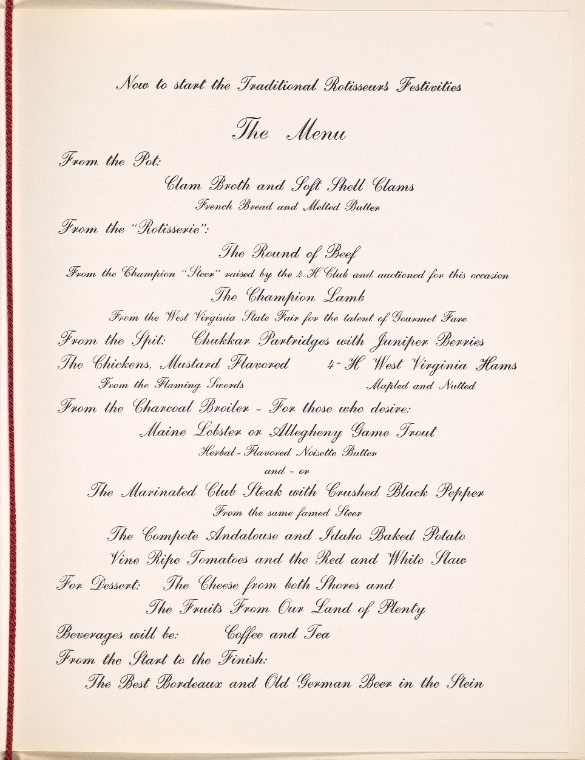 Now to start the Traditional Rotisseurs Festivities
The Menu
From the Pot:
Clam Broth and Soft Shell Clams
French Bread and Melted Butter
From the "Rotisserie":
The Round of Beef
From the Champion "Steer" raised by the 4-H Club and auctioned for this occasion
The Champion Lamb
From the West Virginia State Fair for the talent of Gourmet Fare
From the Spit: Chukkar Partridges with Juniper Berries
The Chickens, Mustard Flavored 4-H West Virginia Hams
From the Flaming Swords Mapled and Nutted
From the Charcoal Broiler - For those who desire:
Maine Lobster or Allegheny Game Trout
Herbal-Flavored Noisette Butter
and - or
The Marinated Club Steak with Crushed Black Pepper
From the same famed Steer
The Compote Andalouse and Idaho Baked Potato
Vine Ripe Tomatoes and the Red and White Slaw
For Dessert: The Cheese from both Shores and
The Fruits From Our Land of Plenty
Beverages will be: Coffee and Tea
From the Start to the Finish:
The Best Bordeaux and Old German Beer in the Stein